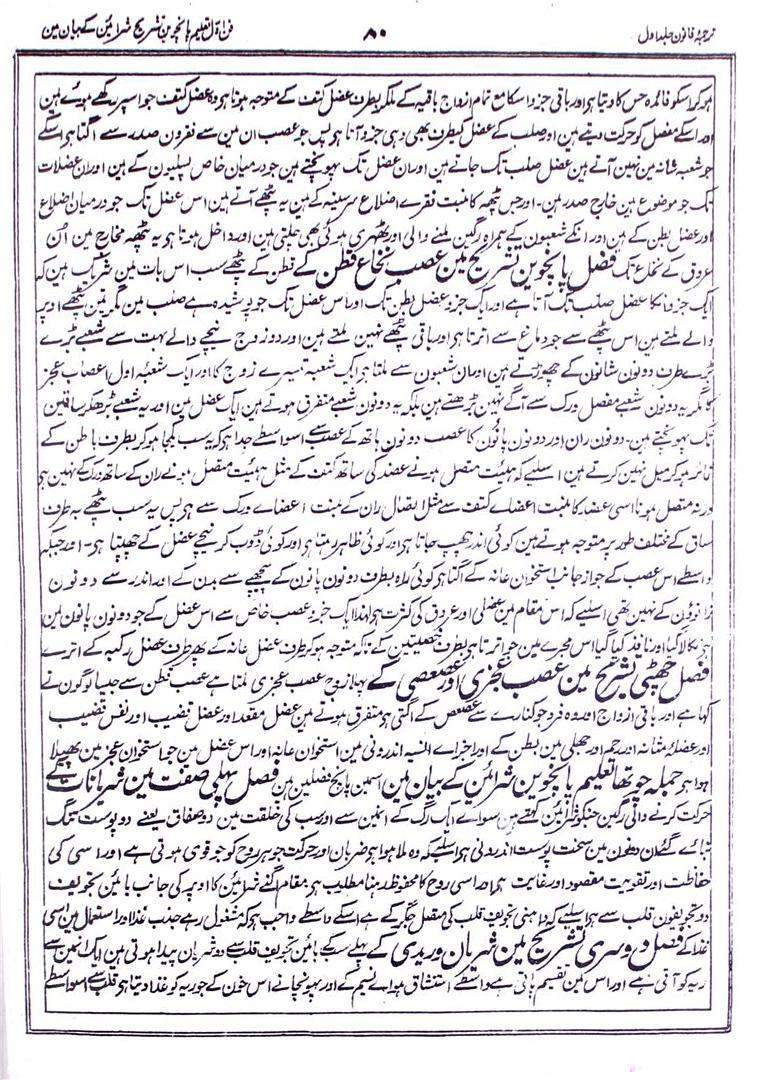 ترجمۂ قانون جلد اول ۸۰ فن اول تعلیم پانچوین تشریح شرائین کے بیان مین
ہوکر اسکو فائدہ حس کا دیتا ہو اور باقی جزو اسکا مع تمام ازواج باقیہ کے ملکر بطرف عضل کتف کے متوجہ ہوتا ہو وہ عضل کتف جو اسپر رکھے ہوئے ہین
اور اسکے مفصل کو حرکت دیتے ہین اور صلب کے عضل کیطرف بھی وہی جزو آتا ہو پس جو عصب ان مین سے فقرون صدر سے اگتا ہو اسکے
جو شعبہ شانہ مین نہین آتے ہین عضل صلب تک جاتے ہین اور ان عضل تک پہونچتے ہین جو درمیان خاص پسلیون کے ہین اور ان عضلات
تک جو موضوع ہین خارج صدر مین۔ اور جس پٹھہ کا منبت فقرے اضلاع سر سینہ کے ہین یہ پٹھے آتے ہین اس عضل تک جو درمیان اضلاع
اور عضل بطن کے ہین اور انکے شعبون کے ہمراہ رگین ملنے والی اور ٹھہری ہوئی بھی چلتی ہین اور داخل ہوتا ہو یہ پٹھہ مخارج مین ان
عروق کے نخاع تک فصل پانچوین تشریح مین عصب نخاع قطن کے قطن کے پٹھے سب اس بات مین شریک ہین کہ
ایک جزو انکا عضل صلب تک آتا ہے اور ایک جزو عضل بطن تک اور اس عضل تک جو پوشیدہ ہے صلب مین مگر تین پٹھے اوپر
والے ملتے ہین اس پٹھے سے جو دماغ سے اترتا ہو اور باقی پٹھے نہین ملتے ہین اور دو زوج نیچے والے بہت سے شعبے بڑے
بڑے طرف دونون شانون کے چھوڑتے ہین اور ان شعبون سے ملتا ہو ایک شعبہ تیسرے زوج کا اور ایک شعبہ اول اعصاب عجز
کا مگر یہ دونون شعبے مفصل ورک سے آگے نہین بڑھتے ہین بلکہ یہ دونون شعبے متفرق ہوتے ہین ایک عضل مین اور یہ شعبے بڑھکر ساقین
تک پہونچتے ہین۔ دونون ران اور دونون پانون کا عصب دونون ہاتھ کے عصب سے اسواسطے جدا ہو کہ یہ سب یکجا ہو کر بطرف باطن کے
ہو کر میل نہین کرتے ہین اسلیے کہ ہیئت متصل ہونے عضد کی ساتھ کتف کے مثل ہیئت متصل ہونے ران کے ساتھ ورک کے نہین ہی
اور نہ متصل ہونا اسی عضد کا منبت اعضاے کتف سے مثل اتصال ران کے منبت اعضاے ورک سے ہو پس یہ سب پٹھے بہ طرف
ساق کے مختلف طور پر متوجہ ہوتے ہین کوئی اندر چھپ جاتا ہو اور کوئی ظاہر رہتا ہو اور کوئی ڈوب کر نیچے عضل کے چھپتا ہی۔ اور جبکہ
واسطے اس عصب کے جو از جانب استخوان عانہ کے اگتا ہو کوئی راہ بطرف دونون پانون کے پیچھے سے بدن کے اور اندر سے دونون
زانوون کے نہین تھی اسلیے کہ اس مقام مین عضل اور عروق کی کثرت ہو لہذا ایک جزو عصب خاص سے اس عضل کے جو دونون پانون مین
ہو نکالا گیا اور نافذ کیا گیا اس مجرے مین جو اترتا ہو بطرف خصیتین کے تاکہ متوجہ ہو کر طرف عضل عانہ کے پھر طرف عضل رکبہ کے اترے
فصل چھٹی تشریح مین عصب عجزی اور عصعصی کے پہلا زوج عصب عجزی ملتا ہے عصب قطن سے جیسا لوگون نے
کہا ہے اور باقی ازواج اور وہ فرد جو کنارے سے عصعص کے اگتی ہو متفرق ہوتے ہین عضل مقعد اور عضل قضیب اور نفس قضیب
اور عضلۂ مثانہ اور رحم اور جھلی مین بطن کے اور اجزاے انسیہ اندرونی مین استخوان عانہ اور اس عضل مین جو استخوان عجز مین پھیلا
ہوا ہو جملہ چوتھا تعلیم پانچوین شرائین کے بیان مین اسمین پانچ فصلین ہین فصل پہلی صفت مین شریانات کے
حرکت کرنے والی رگین جنکو شرائین کہتے ہین سواے ایک رگ کے انمین سے اور سب کی خلقت مین دو صفاق یعنے دو پوست تنگ
بنائے گئے ان دونون مین سخت پوست اندرونی ہو اسلیے کہ وہ ملا ہوا ہو ضربان اور حرکت جوہر روح کو جو قوی ہوتی ہے اور اسی کی
حفاظت اور تقویت مقصود اور غایت ہو اور اسی روح کا محفوظ رہنا مطلب ہو مقام اگنے شرائین کا اوپر کی جانب بائین تجویف
دو تجویفون قلب سے ہو اسلیے کہ داہنی تجویف قلب کی متصل جگر کے ہے اسکے واسطے واجب ہو کہ مشغول رہے جذب غذا اور استعمال مین اسی
غذا کے فصل دوسری تشریح مین شریان وریدی کے پہلے سب کے بائین تجویف قلب سے دو شریان پیدا ہوتی ہین ایک انمین سے
ریہ کو آتی ہے اور اس مین تقسیم پاتی ہے واسطے استنشاق ہواے نسیم کے اور پہونچانے اس خون کے جو ریہ کو غذا دیتا ہو قلب سے اسواسطے